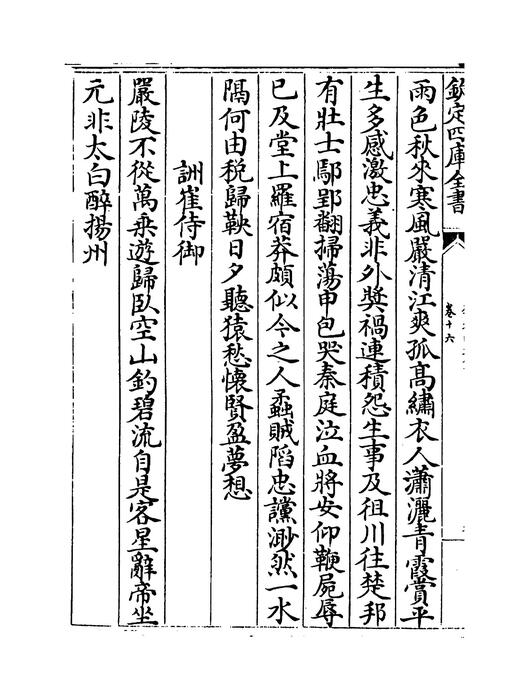 欽定四庫全書
卷十六
雨色秋來寒風嚴清江爽孤髙繡衣人瀟灑青霞賞平
生多感激忠義非外奬禍連積怨生事及徂川往楚邦
有壯士鄢郢翻掃蕩申包哭秦庭泣血將安仰鞭屍辱
已及堂上羅宿莽頗似今之人蟊賊陷忠讜渺然一水
隔何由稅歸鞅日夕聽猿愁懷賢盈夢想
詶崔侍御
嚴陵不從萬乘遊歸臥空山釣碧流自是客星辭帝坐
元非太白醉揚州